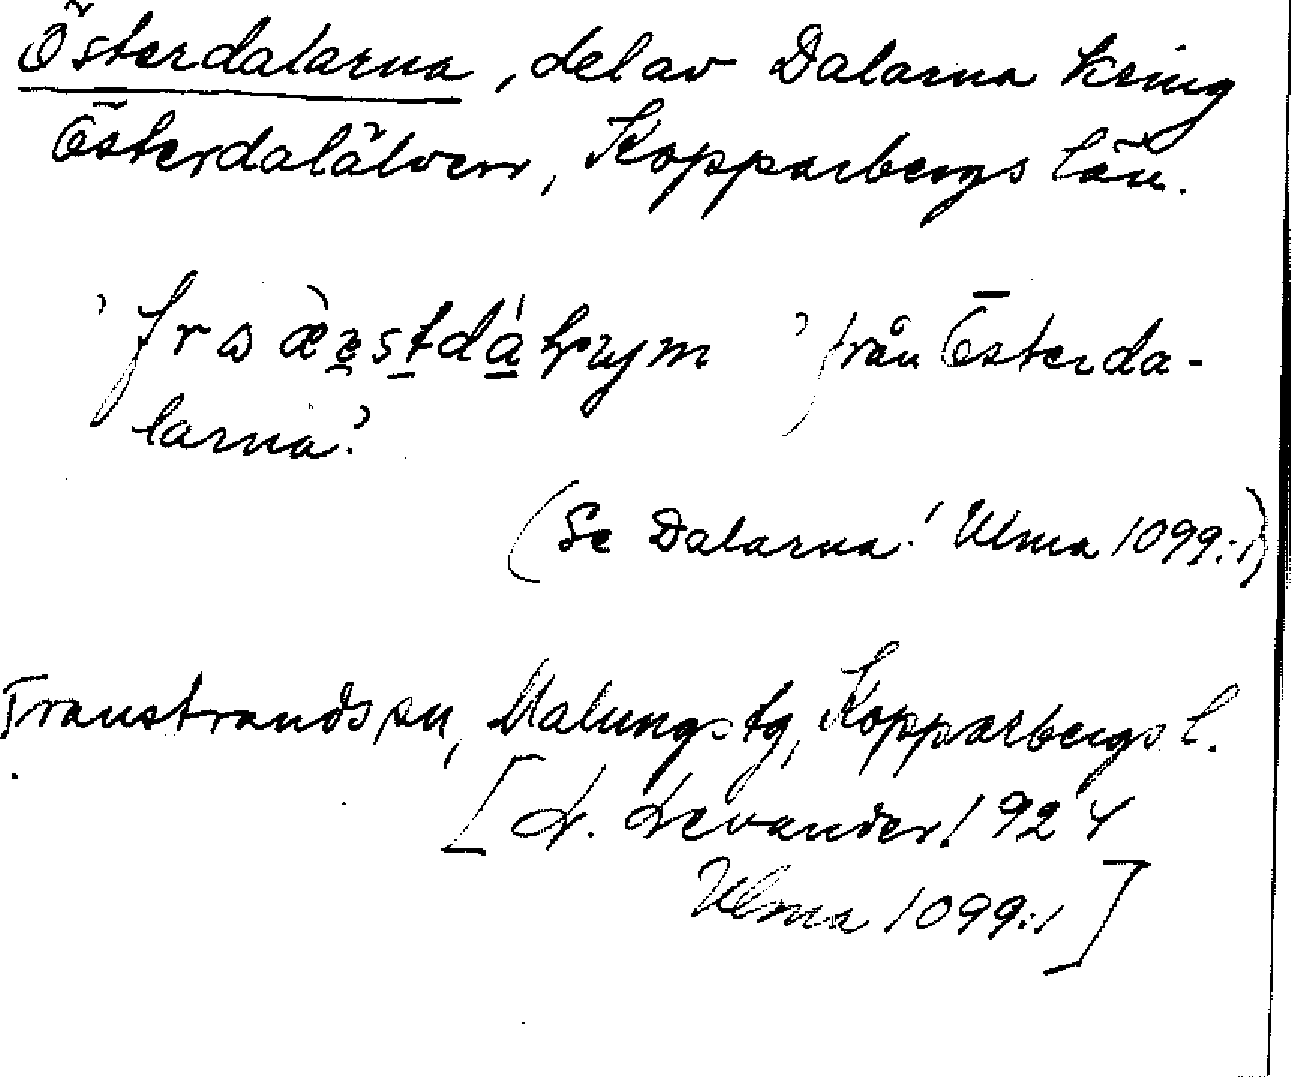 Österdalarna, del av Dalarna kring
Österdalälven, Kopparbergs län.
från Österda-
larna.'
(Se Dalarna! Ulma 1099:1)
Transtrands sn, Malungs tg, Kopparbergs l.
[L. Levander 1924
Ulma 1099:1]